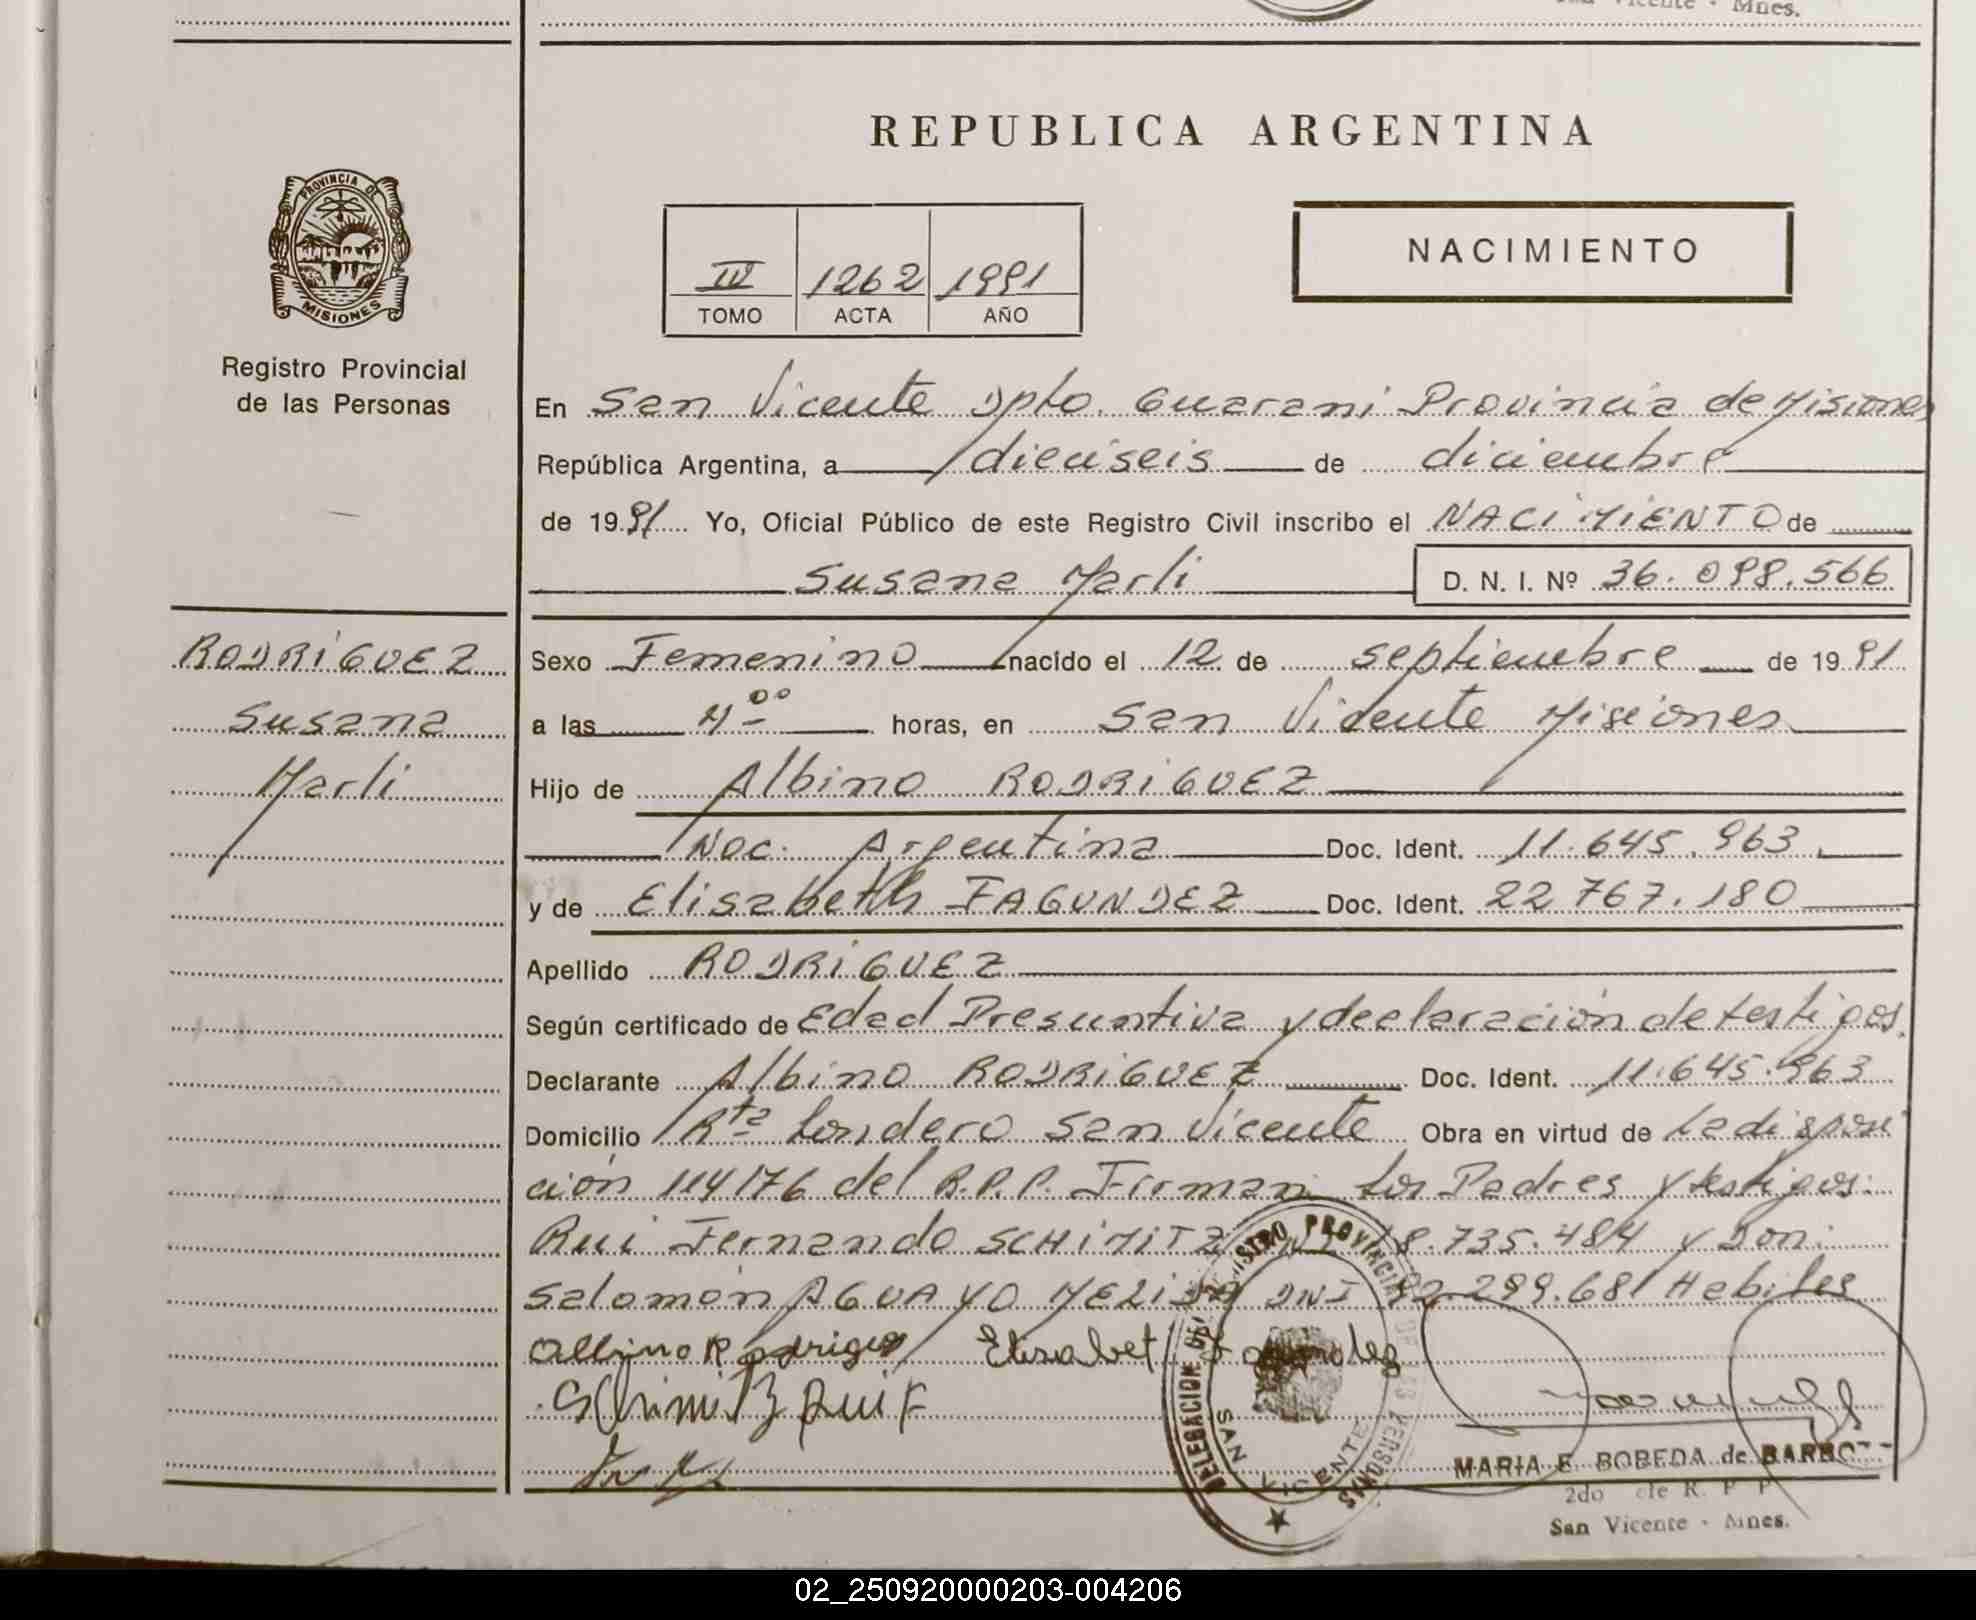 San Vicente - Mnes.
REPUBLICA ARGENTINA
PROVINCIA DE
MISIONES
Registro Provincial
de las Personas
IV 1262 1991
TOMO ACTA AÑO
NACIMIENTO
En San Vicente Dpto. Guarani Provincia de Misiones
República Argentina, a dieciseis de diciembre
de 1991 Yo, Oficial Público de este Registro Civil inscribo el NACIMIENTO de
Susana Marli D. N. I. Nº 36.098.566
RODRIGUEZ
Susana
Marli
Sexo Femenino nacido el 12 de septiembre de 1991
a las horas, en San Vicente Misiones
Hijo de Albino RODRIGUEZ
Nac. Argentina Doc. Ident. 11.645.963
y de Elisabeth FAGUNDEZ Doc. Ident. 22 767.180
Apellido RODRIGUEZ
Según certificado de Edad Presuntiva y declaración de testigos.
Declarante Albino RODRIGUEZ Doc. Ident. 11.645.963
Domicilio Rta Londero San Vicente Obra en virtud de La disposi
ción 114/76 del R.P.P. Firman Los Padres y testigos:
Rui Fernando SCHIMITZ 18.735.484 y Don:
Salomón AGUAYO MELIDA DNI 92.299.681 Habiles
Albino Rodrigues Elisabet
Schimitz Rui F
DELEGACION DEL REGISTRO PROVINCIAL DE LAS PERSONAS
SAN VICENTE
MARIA E. BOBEDA de
2do R. P. P
San Vicente - Mnes.
02_250920000203-004206